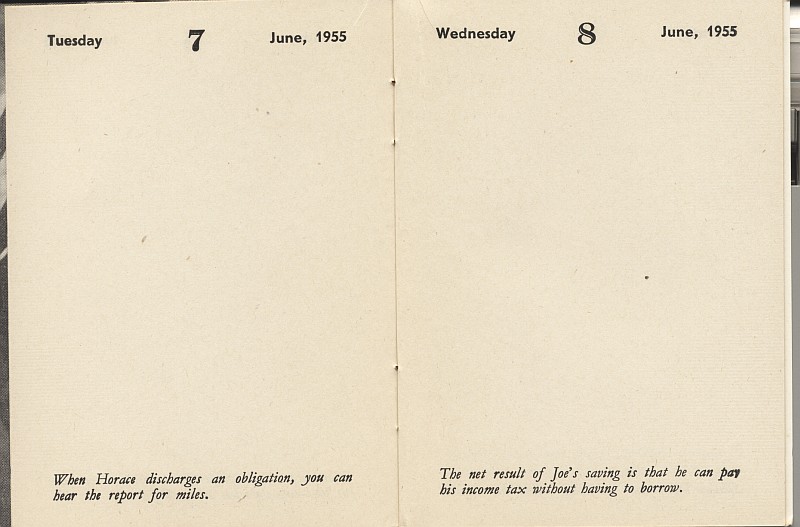 Tuesday 7 June, 1955
When Horace discharges an obligation, you can
hear the report for miles.
Wednesday 8 June, 1955
The net result of Joe's saving is that he can pay
his income tax without having to borrow.